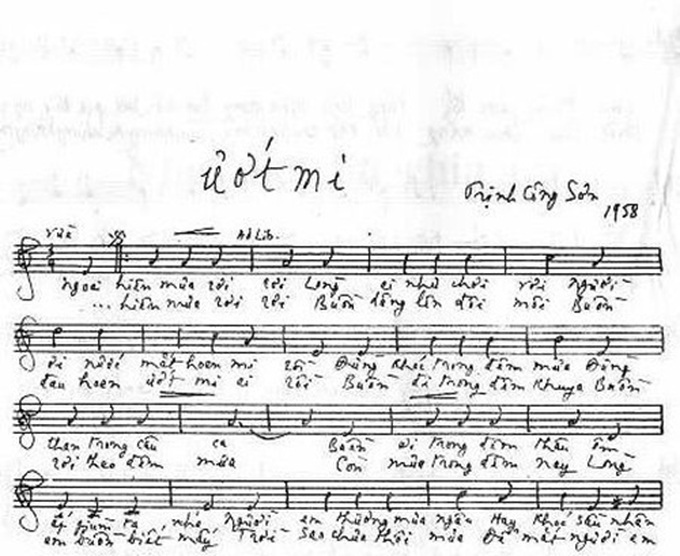 ướt mi
Trịnh Công Sơn
1958
vừa Ad Lib.
ngoài hiên mưa rơi rơi Lòng ai như chơi vơi người
... hiên mưa rơi rơi Buồn dâng lên đôi môi Buồn
ơi nước mắt hoen mi rồi Đừng khóc trong đêm mưa Đừng
đau hoen ướt mi ai rồi Buồn đi trong đêm khuya Buồn
than trong câu ca Buồn ơi trong đêm thâu ôm
rơi theo đêm mưa Còn mưa trong đêm nay Lòng
ấp giùm ta nhé Người em thương mưa ngâu Hay khóc sầu nhân
em buồn biết mấy Trời sao chưa thôi mưa Để mắt người em